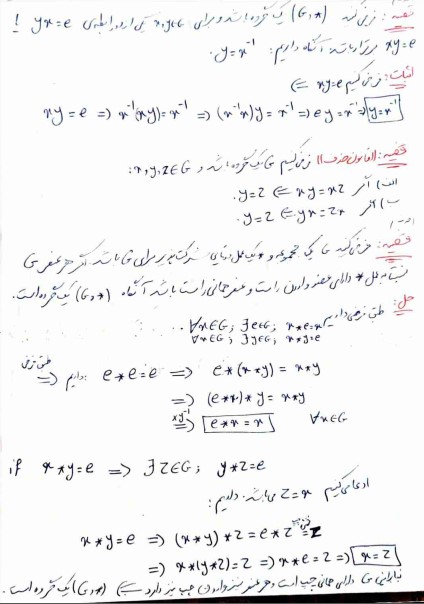 قضیه: فرض کنید (G,*) یک گروه باشد و برای x,y∈G یکی از روابط yx=e یا
xy=e برقرار باشد آنگاه داریم: y=x⁻¹.
اثبات: فرض کنیم xy=e ⇒
xy=e ⇒ x⁻¹(xy)=x⁻¹ ⇒ (x⁻¹x)y=x⁻¹ ⇒ ey=x⁻¹ ⇒ y=x⁻¹
قضیه: ((قانون حذف)) فرض کنیم G یک گروه باشد و x,y,z∈G:
الف) اگر xy=xz ⇒ y=z.
ب) اگر yx=zx ⇒ y=z.
قضیه: فرض کنید G یک مجموعه و * یک عمل دوتایی شرکت پذیر برای G باشد اگر هر عنصر G
نسبت به عمل * دارای عضو وارون راست و عنصر همانی راست باشد آنگاه (G,*) یک گروه است.
حل: طبق فرض داریم ∀x∈G; ∃e∈G; x*e=x
∀x∈G; ∃y∈G; x*y=e
طبق فرض ⇒ داریم: e*e=e ⇒ e*(x*y)=x*y
⇒ (e*x)*y=x*y
*y⁻¹ ⇒ e*x=x ∀x∈G
if x*y=e ⇒ ∃z∈G; y*z=e
ادعا می کنیم z=x می باشد. داریم:
x*y=e ⇒ (x*y)*z=e*z=z
⇒ x*(y*z)=z ⇒ x*e=z ⇒ x=z
بنابراین G دارای همانی چپ است و هر عنصر نیز وارون چپ نیز دارد ⇒ (G,*) یک گروه است.